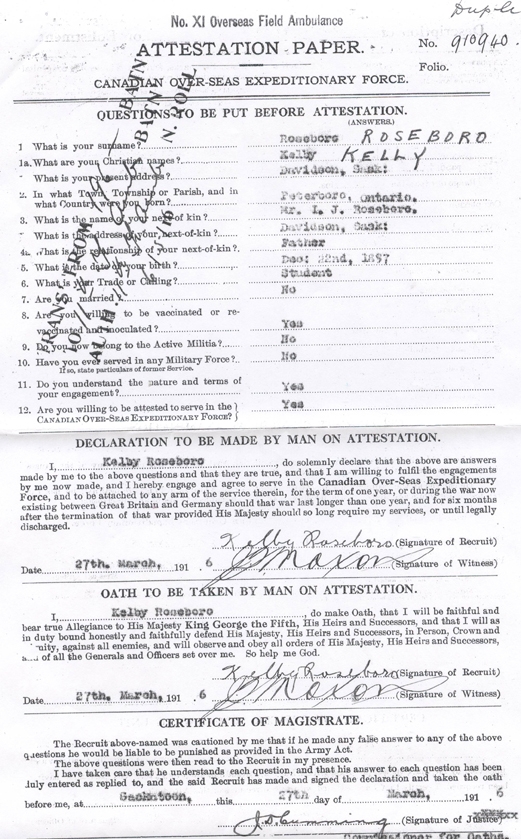 Duple
No. XI Overseas Field Ambulance
ATTESTATION PAPER.
No. 910940.
Folio.
CANADIAN OVER-SEAS EXPEDITIONARY FORCE.
QUESTIONS TO BE PUT BEFORE ATTESTATION.
(ANSWERS.)
1 What is your surname? Roseboro ROSEBORO
1a. What are your Christian names? Kelby KELLY
What is your present address? Davidson, Sask:
2. In what Town, Township or Parish, and in
what Country were you born? Peterboro, Ontario.
3. What is the name of your next-of kin? Mr. L. J. Roseboro.
What is the address of your next-of-kin? Davidson, Sask:
4a. What is the relationship of your next-of-kin? Father
5. What is the date of your birth? Dec: 22nd, 1897
6. What is your Trade or Calling? Student
7. Are you married? No
8. Are you willing to be vaccinated or re-
vaccinated and inoculated? Yes
9. Do you now belong to the Active Militia? No
10. Have you ever served in any Military Force? No
If so, state particulars of former Service.
11. Do you understand the nature and terms of
your engagement? Yes
12. Are you willing to be attested to serve in the
CANADIAN OVER-SEAS EXPEDITIONARY FORCE? Yes
TRANS. FROM BATN
TO BATN
N. ROLL
DECLARATION TO BE MADE BY MAN ON ATTESTATION.
I, Kelby Roseboro, do solemnly declare that the above are answers
made by me to the above questions and that they are true, and that I am willing to fulfil the engagements
by me now made, and I hereby engage and agree to serve in the Canadian Over-Seas Expeditionary
Force, and to be attached to any arm of the service therein, for the term of one year, or during the war now
existing between Great Britain and Germany should that war last longer than one year, and for six months
after the termination of that war provided His Majesty should so long require my services, or until legally
discharged.
Kelby Roseboro (Signature of Recruit)
Date 27th. March, 191 6 Maxon (Signature of Witness)
OATH TO BE TAKEN BY MAN ON ATTESTATION.
I, Kelby Roseboro, do make Oath, that I will be faithful and
bear true Allegiance to His Majesty King George the Fifth, His Heirs and Successors, and that I will as
in duty bound honestly and faithfully defend His Majesty, His Heirs and Successors, in Person, Crown and
nity, against all enemies, and will observe and obey all orders of His Majesty, His Heirs and Successors,
and of all the Generals and Officers set over me. So help me God.
Kelby Roseboro (Signature of Recruit)
Date 27th. March, 191 6 Maxon (Signature of Witness)
CERTIFICATE OF MAGISTRATE.
The Recruit above-named was cautioned by me that if he made any false answer to any of the above
questions he would be liable to be punished as provided in the Army Act.
The above questions were then read to the Recruit in my presence.
I have taken care that he understands each question, and that his answer to each question has been
duly entered as replied to, and the said Recruit has made and signed the declaration and taken the oath
before me, at Saskatoon, this 27th day of March, 191 6
(Signature of Justice)
Commissioner for Oaths.